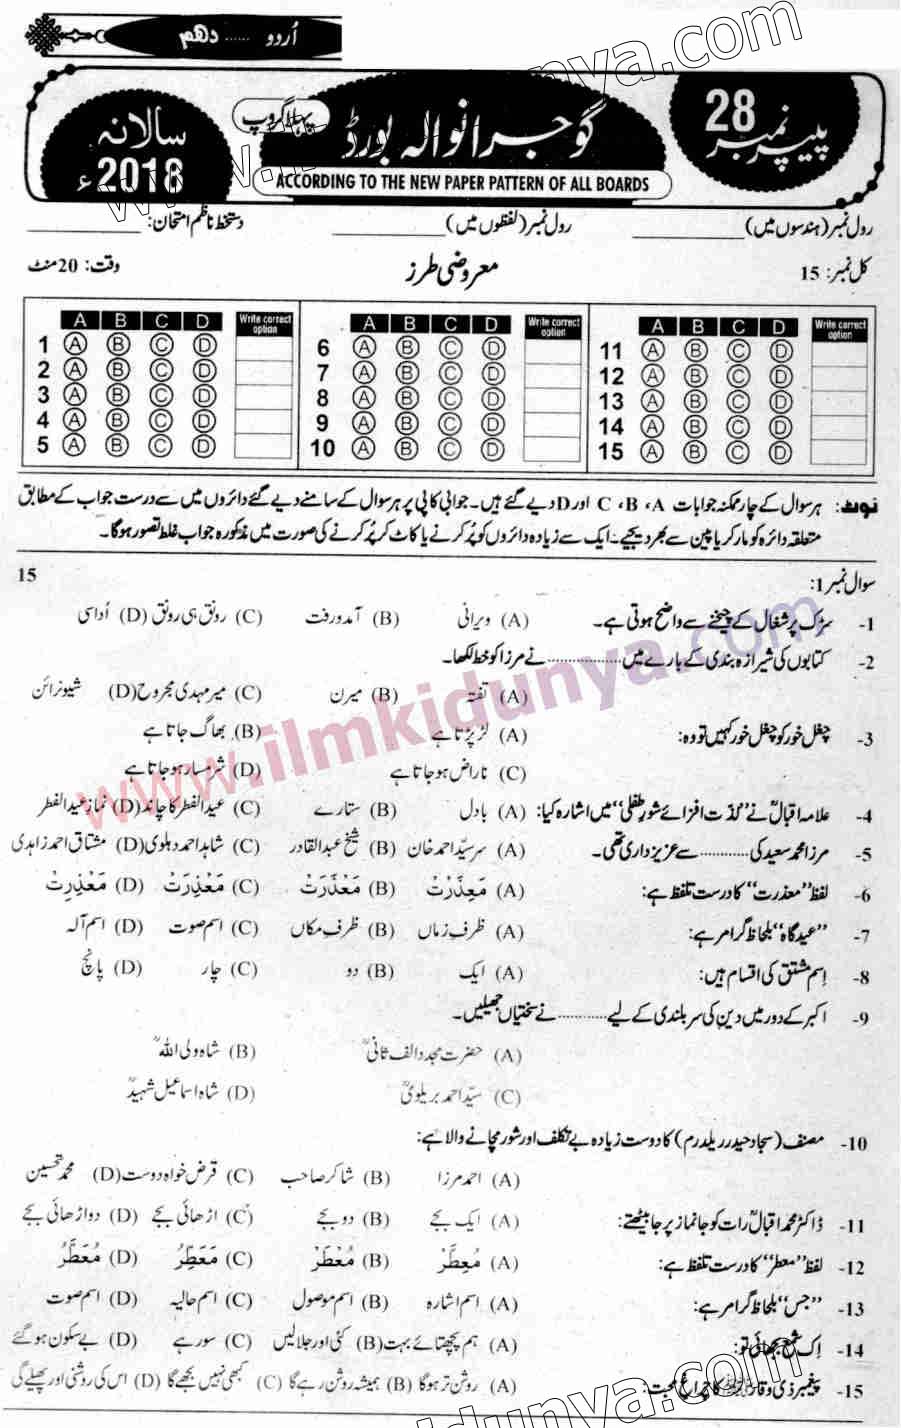 اُردو ...... دہم
پیپر نمبر 28
گوجرانوالہ بورڈ
پہلا گروپ
سالانہ
2018ء
ACCORDING TO THE NEW PAPER PATTERN OF ALL BOARDS
رول نمبر (ہندسوں میں) ____________ رول نمبر (لفظوں میں) ____________ دستخط ناظم امتحان: ____________
کل نمبر: 15 معروضی طرز وقت: 20 منٹ
A B C D Write correct option
1 A B C D
2 A B C D
3 A B C D
4 A B C D
5 A B C D
A B C D Write correct option
6 A B C D
7 A B C D
8 A B C D
9 A B C D
10 A B C D
A B C D Write correct option
11 A B C D
12 A B C D
13 A B C D
14 A B C D
15 A B C D
نوٹ: ہر سوال کے چار ممکنہ جوابات A، B، C اور D دیے گئے ہیں۔ جوابی کاپی پر ہر سوال کے سامنے دیے گئے دائروں میں سے درست جواب کے مطابق
متعلقہ دائرہ کو مارکر یا پین سے بھر دیجیے۔ ایک سے زیادہ دائروں کو پُر کرنے یا کاٹ کر پُر کرنے کی صورت میں مذکورہ جواب غلط تصور ہوگا۔
سوال نمبر 1: 15
1- سڑک پر شغال کے چیخنے سے واضح ہوتی ہے۔ (A) ویرانی (B) آمدورفت (C) رونق ہی رونق (D) اُداسی
2- کتابوں کی شیرازہ بندی کے بارے میں .................. نے مرزا کو خط لکھا۔
(A) تفتہ (B) میرن (C) میر مہدی مجروح (D) شیو نرائن
3- چغل خور کو چغل خور کہیں تو وہ: (A) لڑ پڑتا ہے (B) بھاگ جاتا ہے
(C) ناراض ہو جاتا ہے (D) شرمسار ہو جاتا ہے
4- علامہ اقبالؒ نے ”لذت افزائے شورِ طفلی“ میں اشارہ کیا: (A) بادل (B) ستارے (C) عیدالفطر کا چاند (D) نماز عیدالفطر
5- مرزا محمد سعید کی ............ سے عزیز داری تھی۔ (A) سر سیّد احمد خان (B) شیخ عبدالقادر (C) شاہد احمد دہلوی (D) مشتاق احمد زاہدی
6- لفظ ”معذرت“ کا درست تلفظ ہے: (A) مَعِذَرْتْ (B) مَعْذَرَتْ (C) مَعْذِرَتْ (D) مَعْذِرِتْ
7- ”عیدگاہ“ بلحاظ گرامر ہے: (A) ظرفِ زماں (B) ظرفِ مکاں (C) اسم صوت (D) اسم آلہ
8- اِسم مشتق کی اقسام ہیں: (A) ایک (B) دو (C) چار (D) پانچ
9- اکبر کے دور میں دین کی سربلندی کے لیے ............ نے سختیاں جھیلیں۔
(A) حضرت مجدد الف ثانیؒ (B) شاہ ولی اللہؒ
(C) سیّد احمد بریلویؒ (D) شاہ اسماعیل شہیدؒ
10- مصنف (سجاد حیدر یلدرم) کا دوست زیادہ بے تکلف اور شور مچانے والا ہے:
(A) احمد مرزا (B) شاکر صاحب (C) قرض خواہ دوست (D) محمد تحسین
11- ڈاکٹر محمد اقبالؒ رات کو جانماز پر جا بیٹھتے: (A) ایک بجے (B) دو بجے (C) اڑھائی بجے (D) دو اڑھائی بجے
12- لفظ ”معطر“ کا درست تلفظ ہے: (A) مُعِطَّرْ (B) مُعْطَرْ (C) مَعَطِّرُ (D) مُعَطَّرْ
13- ”جس“ بلحاظ گرامر ہے: (A) اسم اشارہ (B) اسم موصول (C) اسم حالیہ (D) اسم صوت
14- اِک شمع بجھائی تو: (A) ہم پچھتائے بہت (B) کئی اور جلا لیں (C) سو رہے (D) بے سکون ہو گئے
15- پیغمبرِ ذی وقار ﷺ کا چراغِ محبت: (A) روشن تر ہوگا (B) ہمیشہ روشن رہے گا (C) کبھی نہیں بجھے گا (D) اس کی روشنی اور پھیلے گی
www.ilmkidunya.com